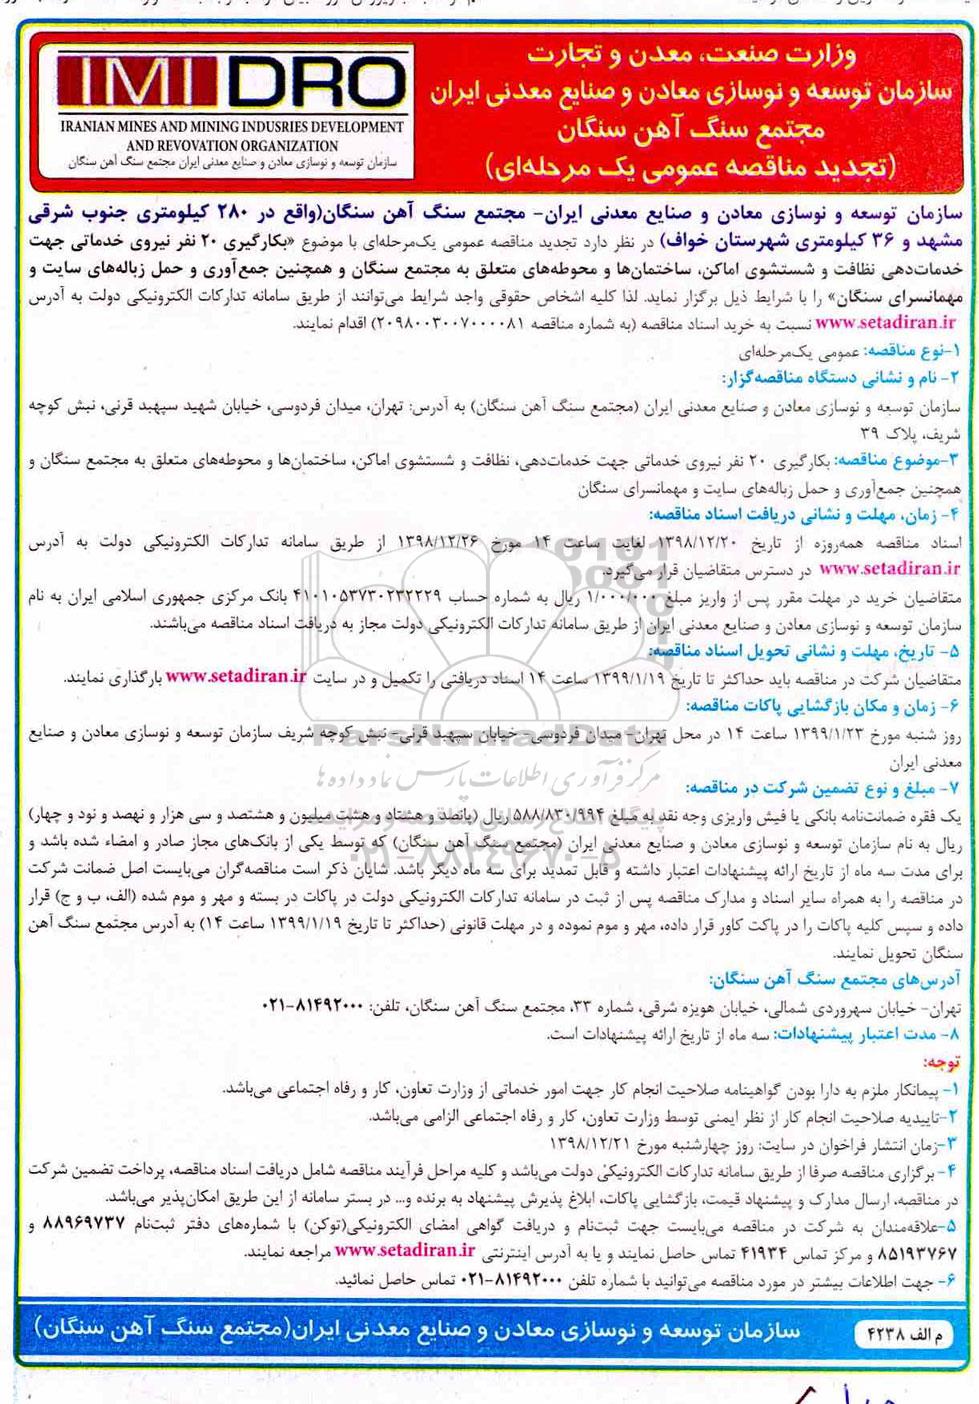 IMIDRO
IRANIAN MINES AND MINING INDUSRIES DEVELOPMENT
AND REVOVATION ORGANIZATION
سازمان توسعه و نوسازی معادن و صنایع معدنی ایران مجتمع سنگ آهن سنگان
وزارت صنعت، معدن و تجارت
سازمان توسعه و نوسازی معادن و صنایع معدنی ایران
مجتمع سنگ آهن سنگان
(تجدید مناقصه عمومی یک مرحله‌ای)
سازمان توسعه و نوسازی معادن و صنایع معدنی ایران- مجتمع سنگ آهن سنگان(واقع در ۲۸۰ کیلومتری جنوب شرقی
مشهد و ۳۶ کیلومتری شهرستان خواف) در نظر دارد تجدید مناقصه عمومی یک‌مرحله‌ای با موضوع «بکارگیری ۲۰ نفر نیروی خدماتی جهت
خدمات‌دهی نظافت و شستشوی اماکن، ساختمان‌ها و محوطه‌های متعلق به مجتمع سنگان و همچنین جمع‌آوری و حمل زباله‌های سایت و
مهمانسرای سنگان» را با شرایط ذیل برگزار نماید. لذا کلیه اشخاص حقوقی واجد شرایط می‌توانند از طریق سامانه تدارکات الکترونیکی دولت به آدرس
www.setadiran.ir نسبت به خرید اسناد مناقصه (به شماره مناقصه ۲۰۹۸۰۰۳۰۰۷۰۰۰۰۸۱) اقدام نمایند.
۱-نوع مناقصه: عمومی یک‌مرحله‌ای
۲- نام و نشانی دستگاه مناقصه‌گزار:
سازمان توسعه و نوسازی معادن و صنایع معدنی ایران (مجتمع سنگ آهن سنگان) به آدرس: تهران، میدان فردوسی، خیابان شهید سپهبد قرنی، نبش کوچه
شریف، پلاک ۳۹
۳-موضوع مناقصه: بکارگیری ۲۰ نفر نیروی خدماتی جهت خدمات‌دهی، نظافت و شستشوی اماکن، ساختمان‌ها و محوطه‌های متعلق به مجتمع سنگان و
همچنین جمع‌آوری و حمل زباله‌های سایت و مهمانسرای سنگان
۴- زمان، مهلت و نشانی دریافت اسناد مناقصه:
اسناد مناقصه همه‌روزه از تاریخ ۱۳۹۸/۱۲/۲۰ لغایت ساعت ۱۴ مورخ ۱۳۹۸/۱۲/۲۶ از طریق سامانه تدارکات الکترونیکی دولت به آدرس
www.setadiran.ir در دسترس متقاضیان قرار می‌گیرد.
متقاضیان خرید در مهلت مقرر پس از واریز مبلغ ۱/۰۰۰/۰۰۰ ریال به شماره حساب ۴۱۰۱۰۵۳۷۳۰۲۳۲۲۲۹ بانک مرکزی جمهوری اسلامی ایران به نام
سازمان توسعه و نوسازی معادن و صنایع معدنی ایران از طریق سامانه تدارکات الکترونیکی دولت مجاز به دریافت اسناد مناقصه می‌باشند.
۵- تاریخ، مهلت و نشانی تحویل اسناد مناقصه:
متقاضیان شرکت در مناقصه باید حداکثر تا تاریخ ۱۳۹۹/۱/۱۹ ساعت ۱۴ اسناد دریافتی را تکمیل و در سایت www.setadiran.ir بارگذاری نمایند.
۶- زمان و مکان بازگشایی پاکات مناقصه:
روز شنبه مورخ ۱۳۹۹/۱/۲۳ ساعت ۱۴ در محل تهران- میدان فردوسی- خیابان سپهبد قرنی- نبش کوچه شریف سازمان توسعه و نوسازی معادن و صنایع
معدنی ایران
۷- مبلغ و نوع تضمین شرکت در مناقصه:
یک فقره ضمانت‌نامه بانکی یا فیش واریزی وجه نقد به مبلغ ۵۸۸/۸۳۰/۹۹۴ ریال (پانصد و هشتاد و هشت میلیون و هشتصد و سی هزار و نهصد و نود و چهار)
ریال به نام سازمان توسعه و نوسازی معادن و صنایع معدنی ایران (مجتمع سنگ آهن سنگان) که توسط یکی از بانک‌های مجاز صادر و امضاء شده باشد و
برای مدت سه ماه از تاریخ ارائه پیشنهادات اعتبار داشته و قابل تمدید برای سه ماه دیگر باشد. شایان ذکر است مناقصه‌گران می‌بایست اصل ضمانت شرکت
در مناقصه را به همراه سایر اسناد و مدارک مناقصه پس از ثبت در سامانه تدارکات الکترونیکی دولت در پاکات در بسته و مهر و موم شده (الف، ب و ج) قرار
داده و سپس کلیه پاکات را در پاکت کاور قرار داده، مهر و موم نموده و در مهلت قانونی (حداکثر تا تاریخ ۱۳۹۹/۱/۱۹ ساعت ۱۴) به آدرس مجتمع سنگ آهن
سنگان تحویل نمایند.
آدرس‌های مجتمع سنگ آهن سنگان:
تهران- خیابان سهروردی شمالی، خیابان هویزه شرقی، شماره ۳۳، مجتمع سنگ آهن سنگان، تلفن: ۸۱۴۹۲۰۰۰-۰۲۱
۸- مدت اعتبار پیشنهادات: سه ماه از تاریخ ارائه پیشنهادات است.
توجه:
۱- پیمانکار ملزم به دارا بودن گواهینامه صلاحیت انجام کار جهت امور خدماتی از وزارت تعاون، کار و رفاه اجتماعی می‌باشد.
۲-تاییدیه صلاحیت انجام کار از نظر ایمنی توسط وزارت تعاون، کار و رفاه اجتماعی الزامی می‌باشد.
۳-زمان انتشار فراخوان در سایت: روز چهارشنبه مورخ ۱۳۹۸/۱۲/۲۱
۴- برگزاری مناقصه صرفا از طریق سامانه تدارکات الکترونیکی دولت می‌باشد و کلیه مراحل فرآیند مناقصه شامل دریافت اسناد مناقصه، پرداخت تضمین شرکت
در مناقصه، ارسال مدارک و پیشنهاد قیمت، بازگشایی پاکات، ابلاغ پذیرش پیشنهاد به برنده و... در بستر سامانه از این طریق امکان‌پذیر می‌باشد.
۵-علاقه‌مندان به شرکت در مناقصه می‌بایست جهت ثبت‌نام و دریافت گواهی امضای الکترونیکی(توکن) با شماره‌های دفتر ثبت‌نام ۸۸۹۶۹۷۳۷ و
۸۵۱۹۳۷۶۷ و مرکز تماس ۴۱۹۳۴ تماس حاصل نمایند و یا به آدرس اینترنتی www.setadiran.ir مراجعه نمایند.
۶- جهت اطلاعات بیشتر در مورد مناقصه می‌توانید با شماره تلفن ۸۱۴۹۲۰۰۰-۰۲۱ تماس حاصل نمائید.
م الف ۴۲۳۸
سازمان توسعه و نوسازی معادن و صنایع معدنی ایران(مجتمع سنگ آهن سنگان)
ParsNamadData
مرکز فرآوری اطلاعات پارس نماد داده‌ها
۰۲۱-۸۸۳۴۹۶۷۰-۵